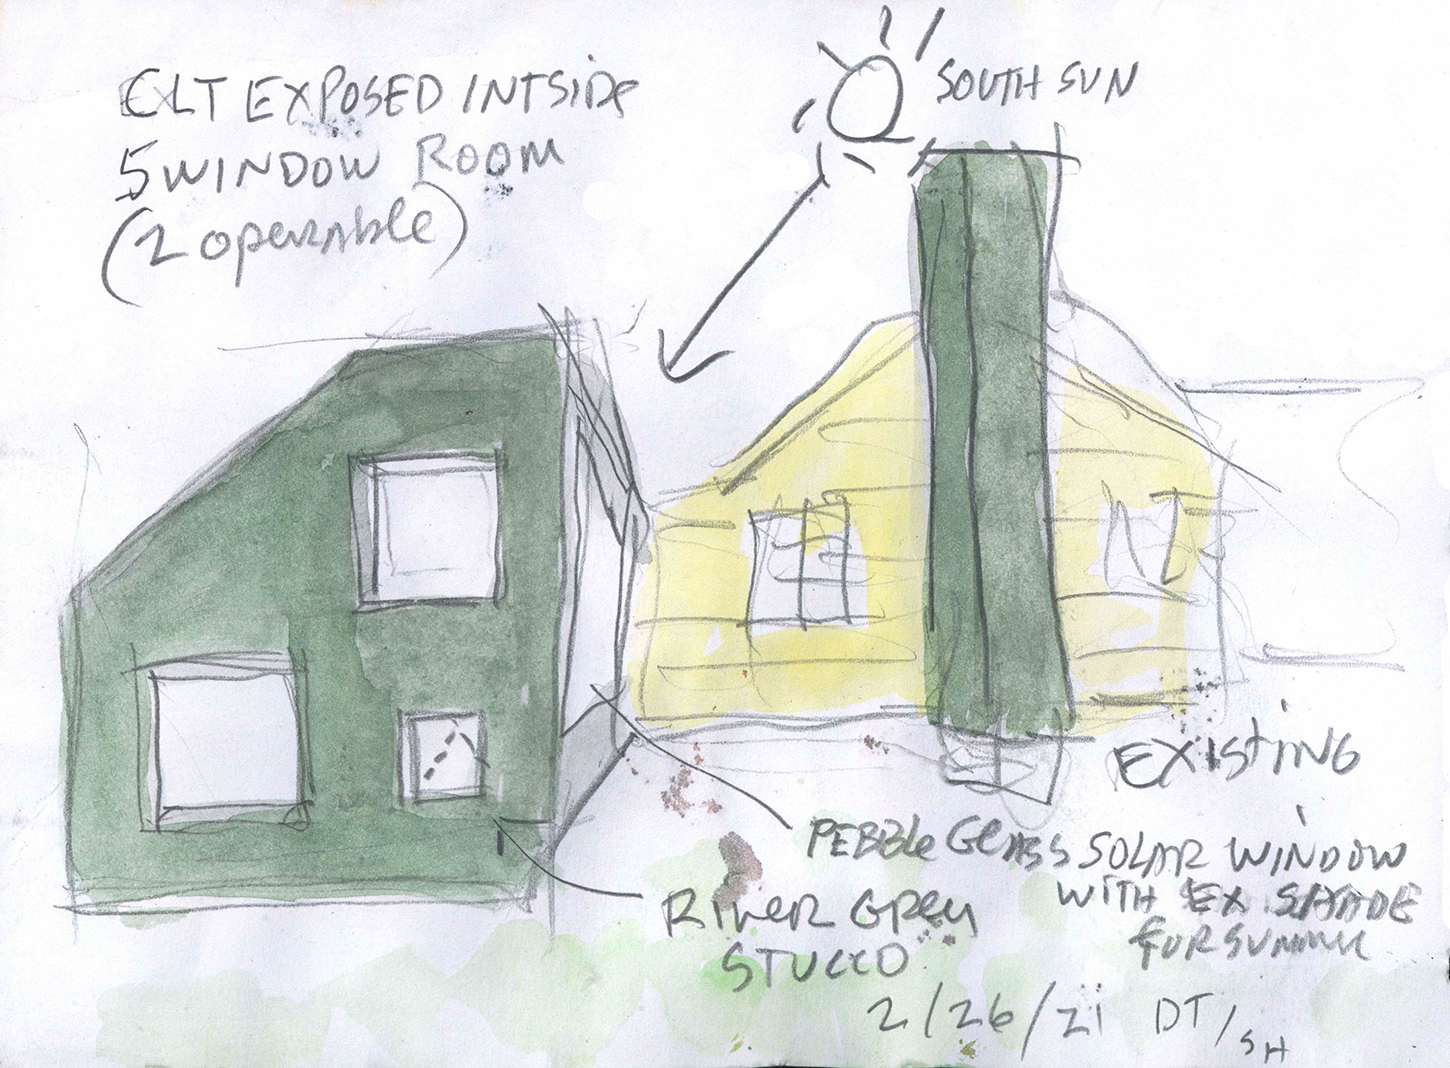 CLT EXPOSED INTSIDE
5 WINDOW ROOM
(2 operable)
SOUTH SUN
EXISTING
PEBBLE GLASS SOLAR WINDOW
WITH EX SHADE
FOR SUMMER
RIVER GREY
STUCCO
2/26/21 DT/SH